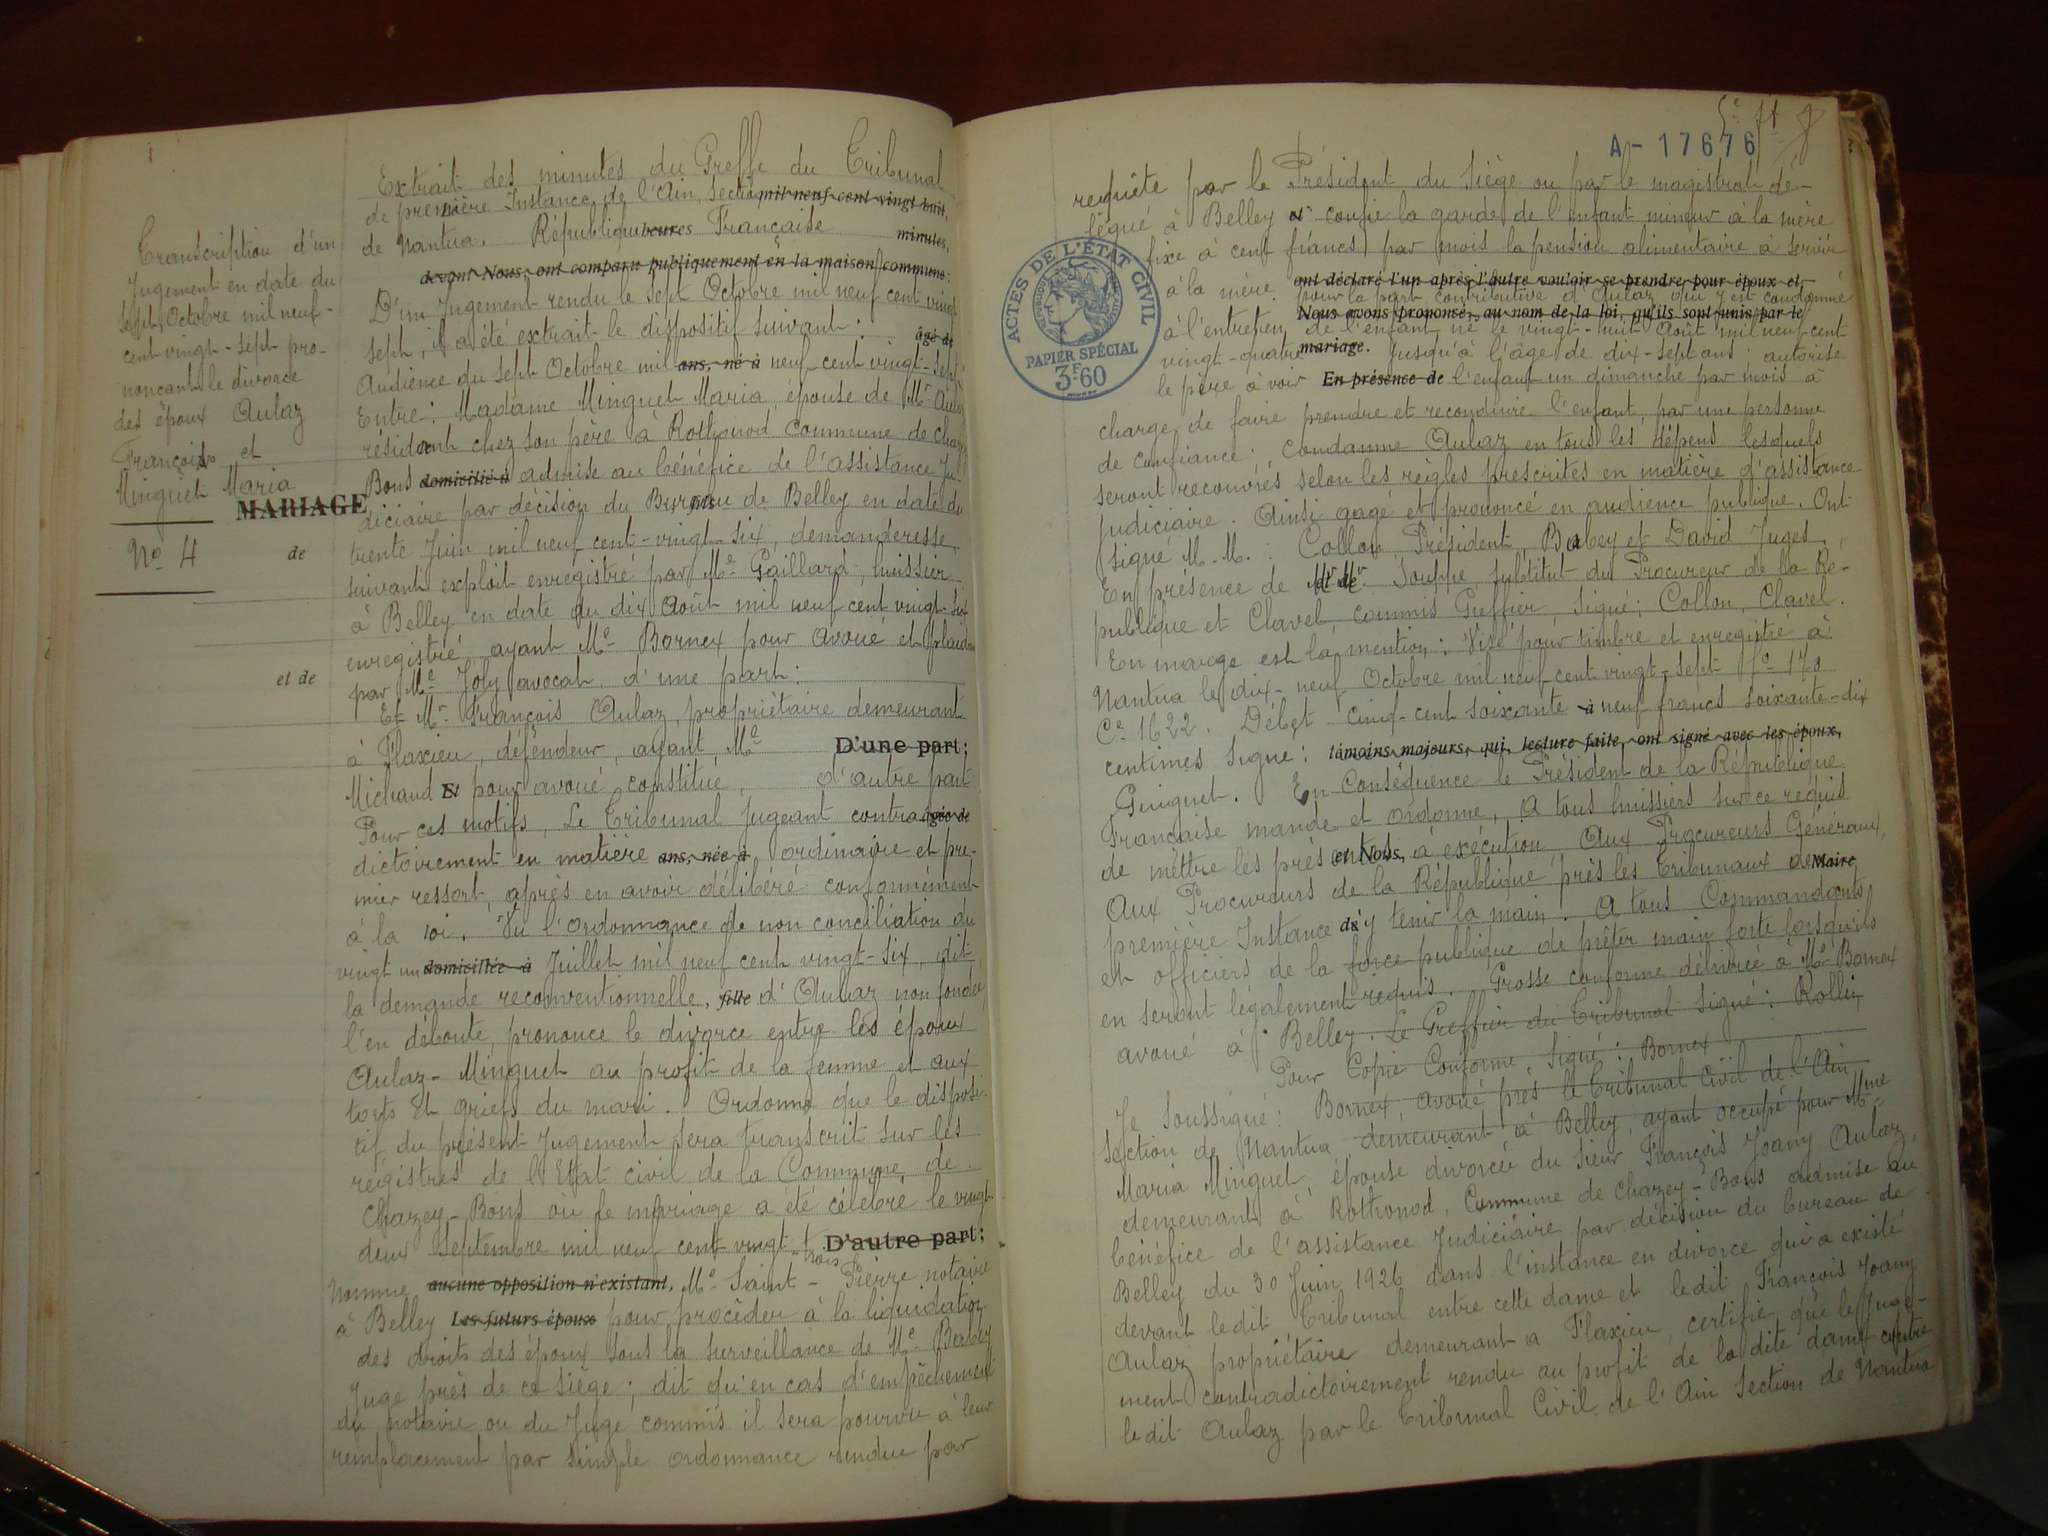 Transcription d'un
Jugement en date du
sept Octobre mil neuf-
cent vingt-sept pro-
noncant le divorce
des époux Aulaz
François et
Minguet Maria
MARIAGE
No 4
de
et de
Extrait des minutes du Greffe du Tribunal
de première Instance de l'Ain, Section mil neuf cent vingt huit,
de Nantua. République heures Française minutes,
devant Nous, ont comparu publiquement en la maison commune:
D'un Jugement rendu le sept Octobre mil neuf cent vingt
sept, il a été extrait le dispositif suivant: âgé de
Audience du sept Octobre mil ans, né à neuf cent vingt-sept
Entre: Madame Minguet Maria, épouse de Mr Aulaz
résidant chez son père à Rothonod commune de Chazey
Bons domicilié à admise au bénéfice de l'assistance Ju-
diciaire par décision du Bureau de Belley en date du
trente Juin mil neuf cent-vingt-six, demanderesse,
suivant exploit enregistré par Me Gaillard, huissier
à Belley en date du dix Août mil neuf cent vingt-six
enregistré, ayant Me Bornex pour avoué et plaidant
par Me Joly avocat, d'une part:
Et Mr François Aulaz, propriétaire demeurant
à Flaxieu, défendeur, ayant Me D'une part;
Michaud Et pour avoué constitué, d'autre part
Pour ces motifs, Le Tribunal Jugeant contra âgée de
dictoirement en matière ans, née à ordinaire et pre-
mier ressort, après en avoir délibéré conformément
à la loi. Vu l'ordonnance de non conciliation du
vingt un domiciliée à Juillet mil neuf cent vingt-six, dit
la demande reconventionnelle, fille d'Aulaz non fondée,
l'en déboute, prononce le divorce entre les époux
Aulaz-Minguet au profit de la femme et aux
torts et griefs du mari. Ordonne que le disposi-
tif du présent Jugement sera transcrit sur les
régistres de l'Etat civil de la Commune de
Chazey-Bons où le mariage a été célébré le vingt
deux Septembre mil neuf cent-vingt-trois D'autre part;
Nomme aucune opposition n'existant, Me Saint-Pierre notaire
à Belley Les futurs époux pour procéder à la liquidation
des droits des époux sous la surveillance de Me Babey
Juge près de ce siège; dit qu'en cas d'empêchement
du notaire ou du Juge commis il sera pourvu à leur
remplacement par simple ordonnance rendue par
A-17676
requête par le Président du Siège ou par le magistrat dé-
légué à Belley et confie la garde de l'enfant mineur à la mère
fixe à cent francs par mois la pension alimentaire à servir
à la mère ont déclaré l'un après l'autre vouloir se prendre pour époux et
pour la part contributive d'Aulaz qui y est condamné
Nous avons prononcé, au nom de la loi, qu'ils sont unis par le
à l'entretien de l'enfant né le vingt-huit Août mil neuf cent
vingt-quatre mariage. Jusqu'à l'âge de dix-sept ans autorise
le père à voir En présence de l'enfant un dimanche par mois à
charge de faire prendre et reconduire l'enfant par une personne
de confiance. Condamne Aulaz en tous les dépens lesquels
seront recouvrés selon les règles prescrites en matière d'assistance
Judiciaire. Ainsi gagé et prononcé en audience publique. Ont
signé M.M.: Collon, Président, Babey et David Juges.
En présence de Mr Jouffre, substitut du Procureur de la Ré-
publique et Clavel, commis Greffier signé: Collon, Clavel.
En marge est la mention: Visé pour timbre et enregistré à
Nantua le dix-neuf Octobre mil neuf cent vingt-sept fo 170
Ce 1622. Débet cinq-cent soixante à neuf francs soixante-dix
centimes Signé: témoins majeurs, qui, lecture faite, ont signé avec les époux,
Guiguet. En Conséquence le Président de la République
Française mande et ordonne, A tous huissiers sur ce requis
de mettre les présentes et Nous, à exécution Aux Procureurs Généraux,
Aux Procureurs de la République près les Tribunaux de Maire
première Instance d'y tenir la main. A tous Commandants
et officiers de la force publique de prêter main forte lorsqu'ils
en seront légalement requis. Grosse conforme délivrée à Me Bornex
avoué à Belley. Le Greffier du Tribunal Signé: Rollin
Pour Copie Conforme Signé: Bornex
Je soussigné: Bornex, avoué près le Tribunal Civil de l'Ain
Section de Nantua demeurant à Belley, ayant occupé pour Mme
Maria Minguet, épouse divorcée du sieur François Joany Aulaz,
demeurant à Rothonod, Commune de Chazey-Bons admise au
bénéfice de l'assistance Judiciaire par décision du bureau de
Belley du 30 Juin 1926 dans l'instance en divorce qui a existé
devant ledit Tribunal entre cette dame et ledit François Joany
Aulaz propriétaire demeurant a Flaxieu, certifie que le Juge-
ment contradictoirement rendu au profit de la dite dame contre
ledit Aulaz par le Tribunal Civil de l'Ain Section de Nantua
ACTES DE L'ÉTAT CIVIL
PAPIER SPÉCIAL
3F.60